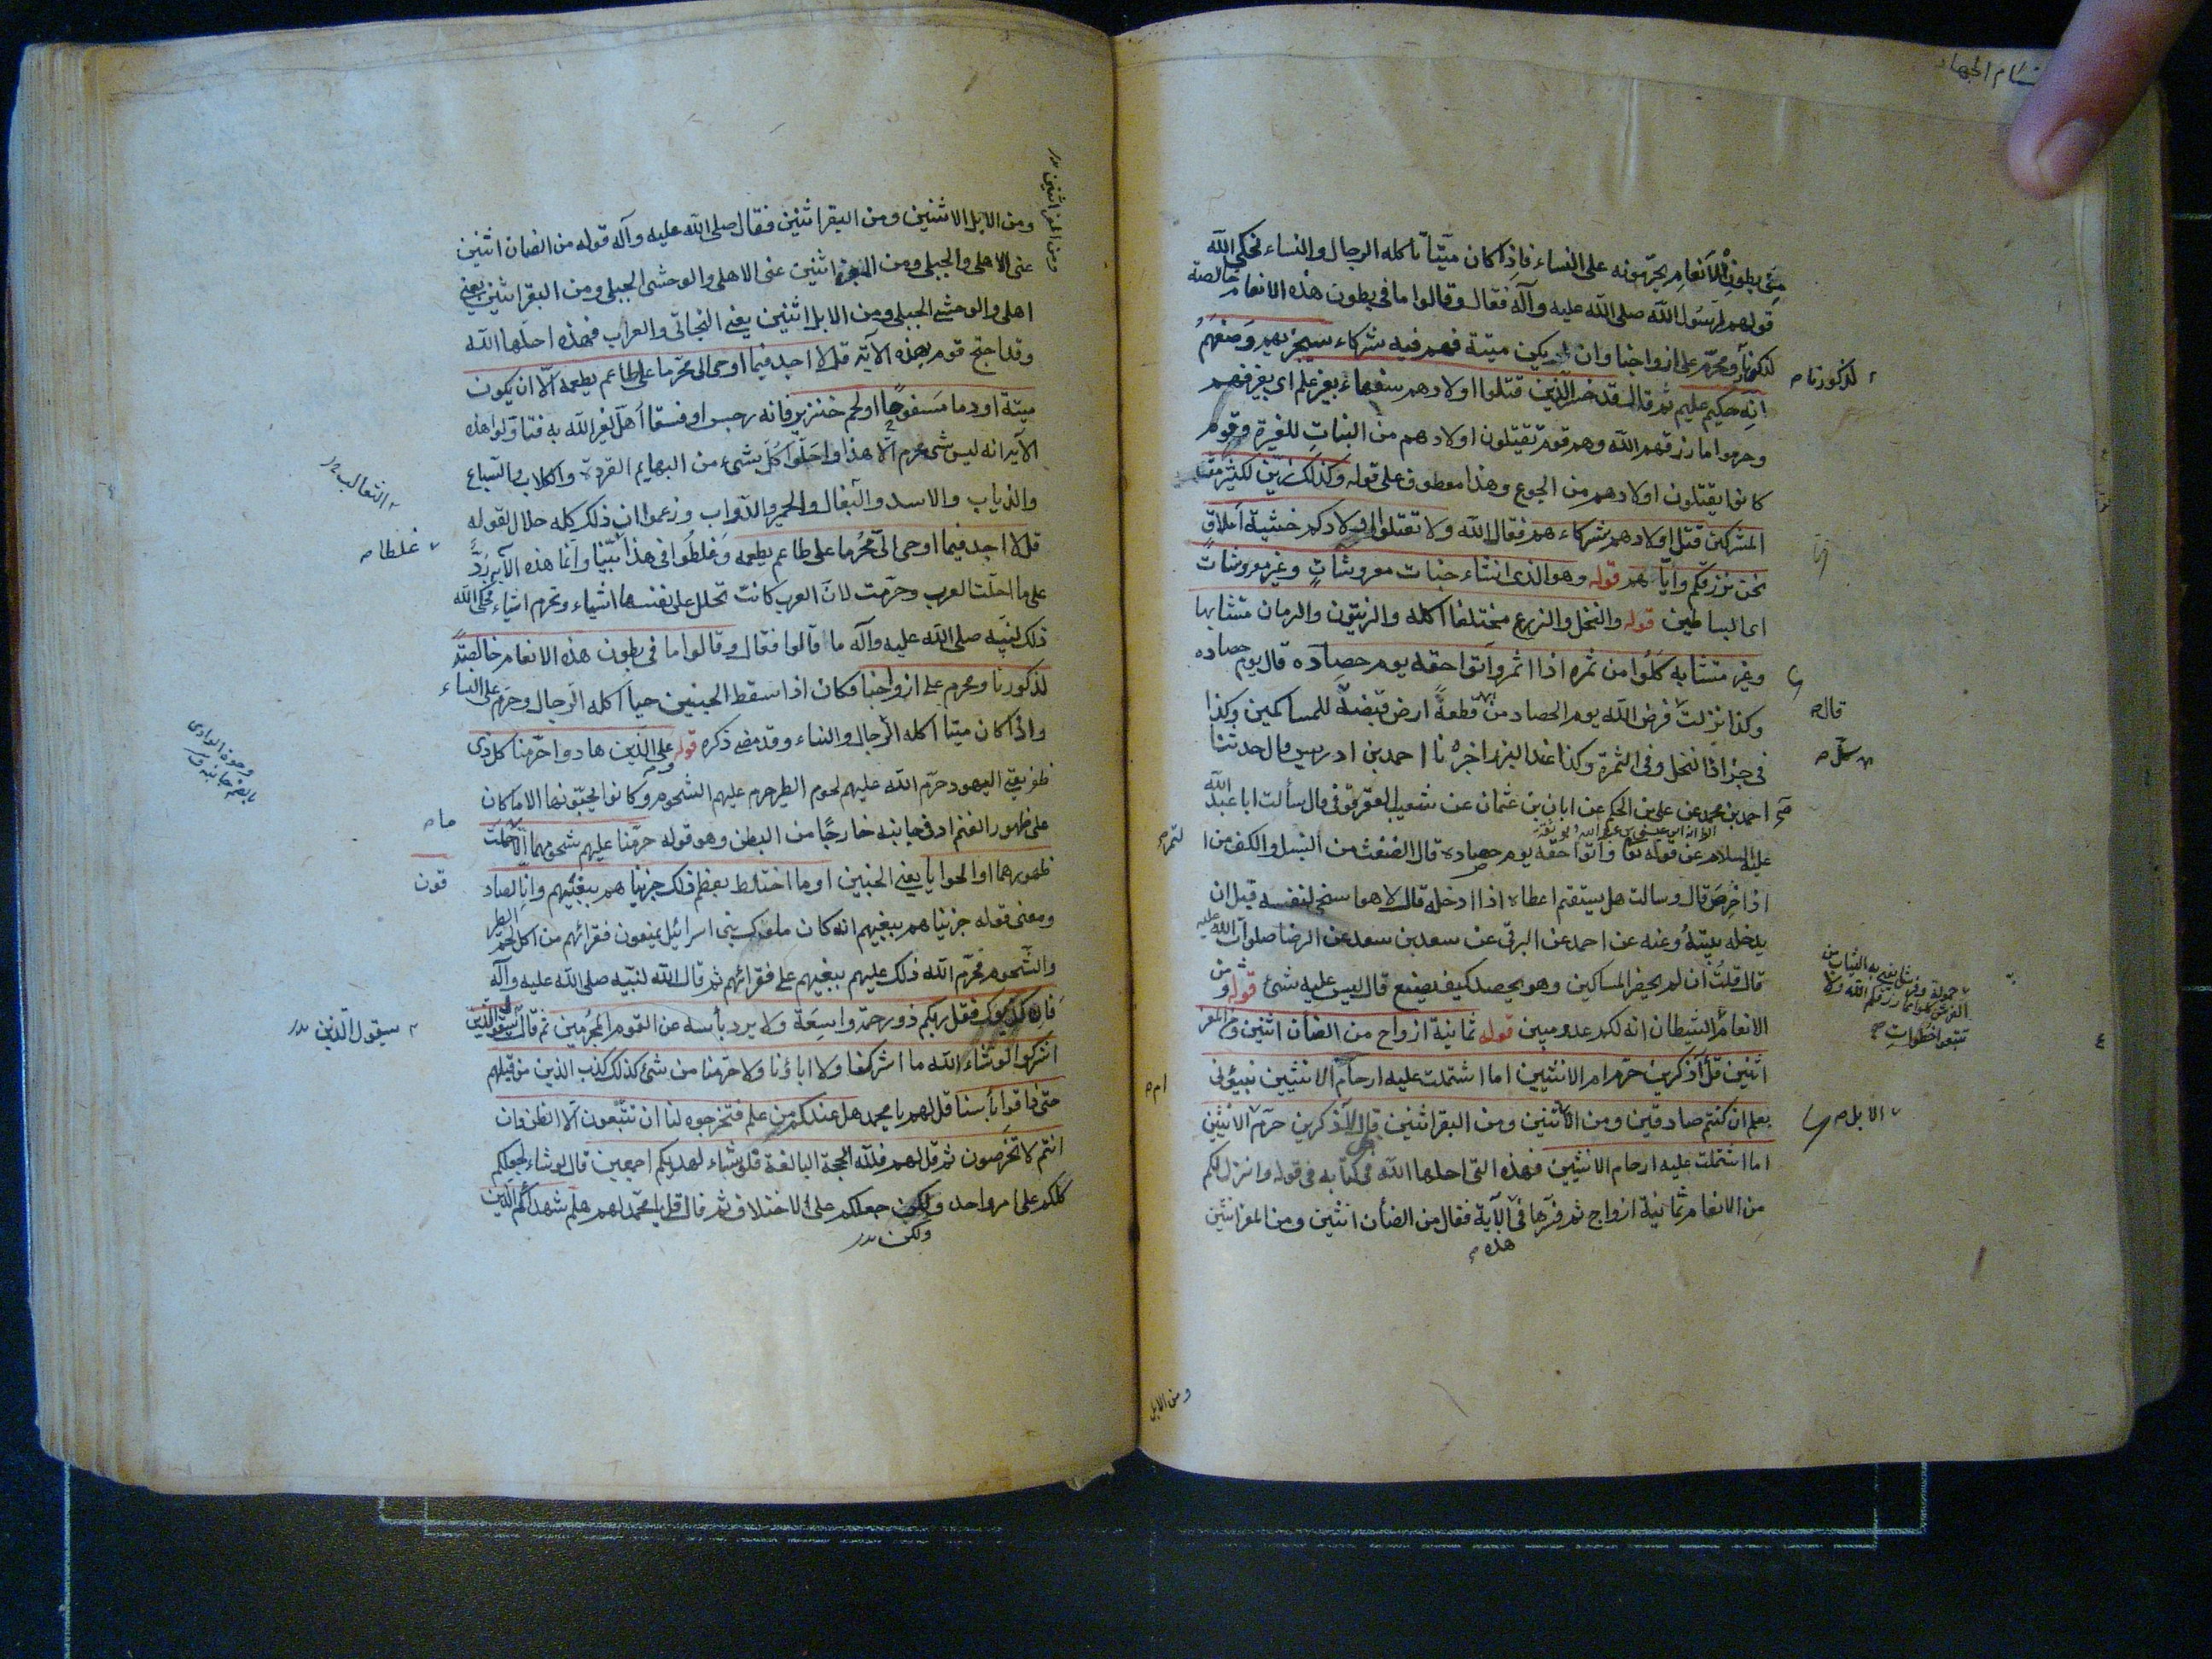 شىء بطون الأنعام يحرمونه على النساء فاذا كان ميتا ياكله الرجال والنساء فحكى الله
قولهم لرسول الله صلى الله عليه وآله فقال وقالوا ما فى بطون هذه الانعام خالصة
لذكورنا ومحرم على ازواجنا وان يكن ميتة فهم فيه شركاء سيجزيهم وصفهم
لذكورنا
انه حكيم عليم ثم قال قد خسر الذين قتلوا اولادهم سفهاء بغير علم اى بغير فهم
وحرموا ما رزقهم الله وهم قوم يقتلون اولادهم من البنات للغيرة وقوم
كانوا يقتلون اولادهم من الجوع وهذا معطوف على قوله وكذلك زين لكثير من
المشركين قتل اولادهم شركاءهم فقال الله ولا تقتلوا اولادكم خشية املاق
نحن نرزقكم واياهم قوله وهو الذى انشاء جنات معروشات وغير معروشات
اى البساطين قوله والنخل والزرع مختلفا اكله والزيتون والرمان متشابها
وغير متشابه كلوا من ثمره اذا اثمر وآتوا حقه يوم حصاده قال يوم حصاده
وكذا نزلت فرض الله يوم الحصاد من قطعة ارض قبضة للمساكين وكذا
قال
فى جزاذ النخل وفى الثمرة وكذا عند البزر اخبرنا احمد بن ادريس قال حدثنا
احمد بن محمد عن على بن الحكم عن ابان بن عثمان عن شعيب العقرقوفى قال سألت ابا عبد الله
عليه السلام عن قوله وآتوا حقه يوم حصاده قال الضغث من السنبل والكف من ا
لتمر
اذا خرص قال وسالت هل يستقيم اعطاه اذا ادخله قال لا هو اسخى لنفسه قبل ان
يدخله بيته وعنه عن احمد عن البرقى عن سعد بن سعد عن الرضا صلوات الله عليه
قال قلت ان لم يحضر المساكين وهو يحصد كيف يصنع قال ليس عليه شئ قوله ومن
حمولة وفرشا يعنى به الثياب من
الفرش كلوا مما رزقكم الله ولا
تتبعوا خطوات
الانعام الشيطان انه لكم عدو مبين قوله ثمانية ازواج من الضأن اثنين ومن المعز
اثنين قل آذكرين حرم ام الانثيين اما اشتملت عليه ارحام الانثيين نبئونى
بعلم ان كنتم صادقين ومن الاثنين ومن البقر اثنين قل آلذكرين حرم الانثيين
الابل
ام
اما اشتملت عليه ارحام الانثيين فهذه التى احلها الله فى كتابه فى قوله وانزل لكم
من الانعام ثمانية ازواج ثم فسرها فى الآية فقال من الضأن اثنين ومن المعز اثنين
هذه
ومن الابل
ومن المعز اثنين
ومن الابل الاثنين ومن البقر اثنين فقال صلى الله عليه وآله قوله من الضان اثنين
عنى الاهلى والجبلى ومن المعز اثنين عنى الاهلى والوحشى الجبلى ومن البقر اثنين يعنى
اهلى والوحشى الجبلى ومن الابل اثنين يعنى البخاتى والعراب فهذه احلها الله
وقد احتج قوم بهذه الآية قل لا اجد فيما اوحى الى محرما على طاعم يطعمه الا ان يكون
ميتة او دما مسفوحا او لحم خنزير فانه رجس او فسقا اهل لغير الله به فتاولوا هذه
الآية انه ليس شىء محرم الا هذا واحلوا كل شىء من البهايم القردة والكلاب والسباع
والذياب والاسد والبغال والحمير والدواب وزعموا ان ذلك كله حلال لقوله
الثعالب
قل لا اجد فيما اوحى الى محرما على طاعم يطعمه وغلطوا فى هذا بينا وانما هذه الآية رد
غلطا
على ما احلت العرب وحرمت لان العرب كانت تحلل على نفسها اشياء وتحرم اشياء فحكى الله
ذلك لنبيه صلى الله عليه وآله ما قالوا فقال وقالوا ما فى بطون هذه الانعام خالصة
لذكورنا ومحرم على ازواجنا فكان اذا سقط الجنين حيا اكله الرجال وحرم على النساء
واذا كان ميتا اكله الرجال والنساء وقد مضى ذكره قوله وعلى الذين هادوا حرمنا كل ذى
ظفر يعنى اليهود حرم الله عليهم لحوم الطير وحرم عليهم الشحوم وكانوا يحبونها الا ما كان
على ظهور الغنم او فى جانبه خارجا من البطن وهو قوله حرمنا عليهم شحومهما الا ما حملت
ما
ظهورهما او الحوايا يعنى الجنبين او ما اختلط بعظم ذلك جزيناهم ببغيهم وانا لصاد
قون
ومعنى قوله جزيناهم ببغيهم انه كان ملوك بنى اسرائيل يمنعون فقرائهم من اكل لحم الطير
والشحوم فحرم الله ذلك عليهم ببغيهم على فقرائهم ثم قال الله لنبيه صلى الله عليه وآله
فان كذبوك فقل ربكم ذو رحمة واسعة ولا يرد بأسه عن القوم المجرمين ثم قال سيقول الذين
سيقول الذين
اشركوا لو شاء الله ما اشركنا ولا اباؤنا ولا حرمنا من شئ كذلك كذب الذين من قبلهم
حتى ذاقوا بأسنا قل لهم يا محمد هل عندكم من علم فتخرجوه لنا ان تتبعون الا الظن وان
انتم الا تخرصون ثم قل لهم فلله الحجة البالغة فلو شاء لهديكم اجمعين قال لو شاء لجعلكم
كلكم على امر واحد ولكن جعلكم على الاختلاف ثم قال قل يا محمد لهم هلم شهداءكم الذين
ولكن